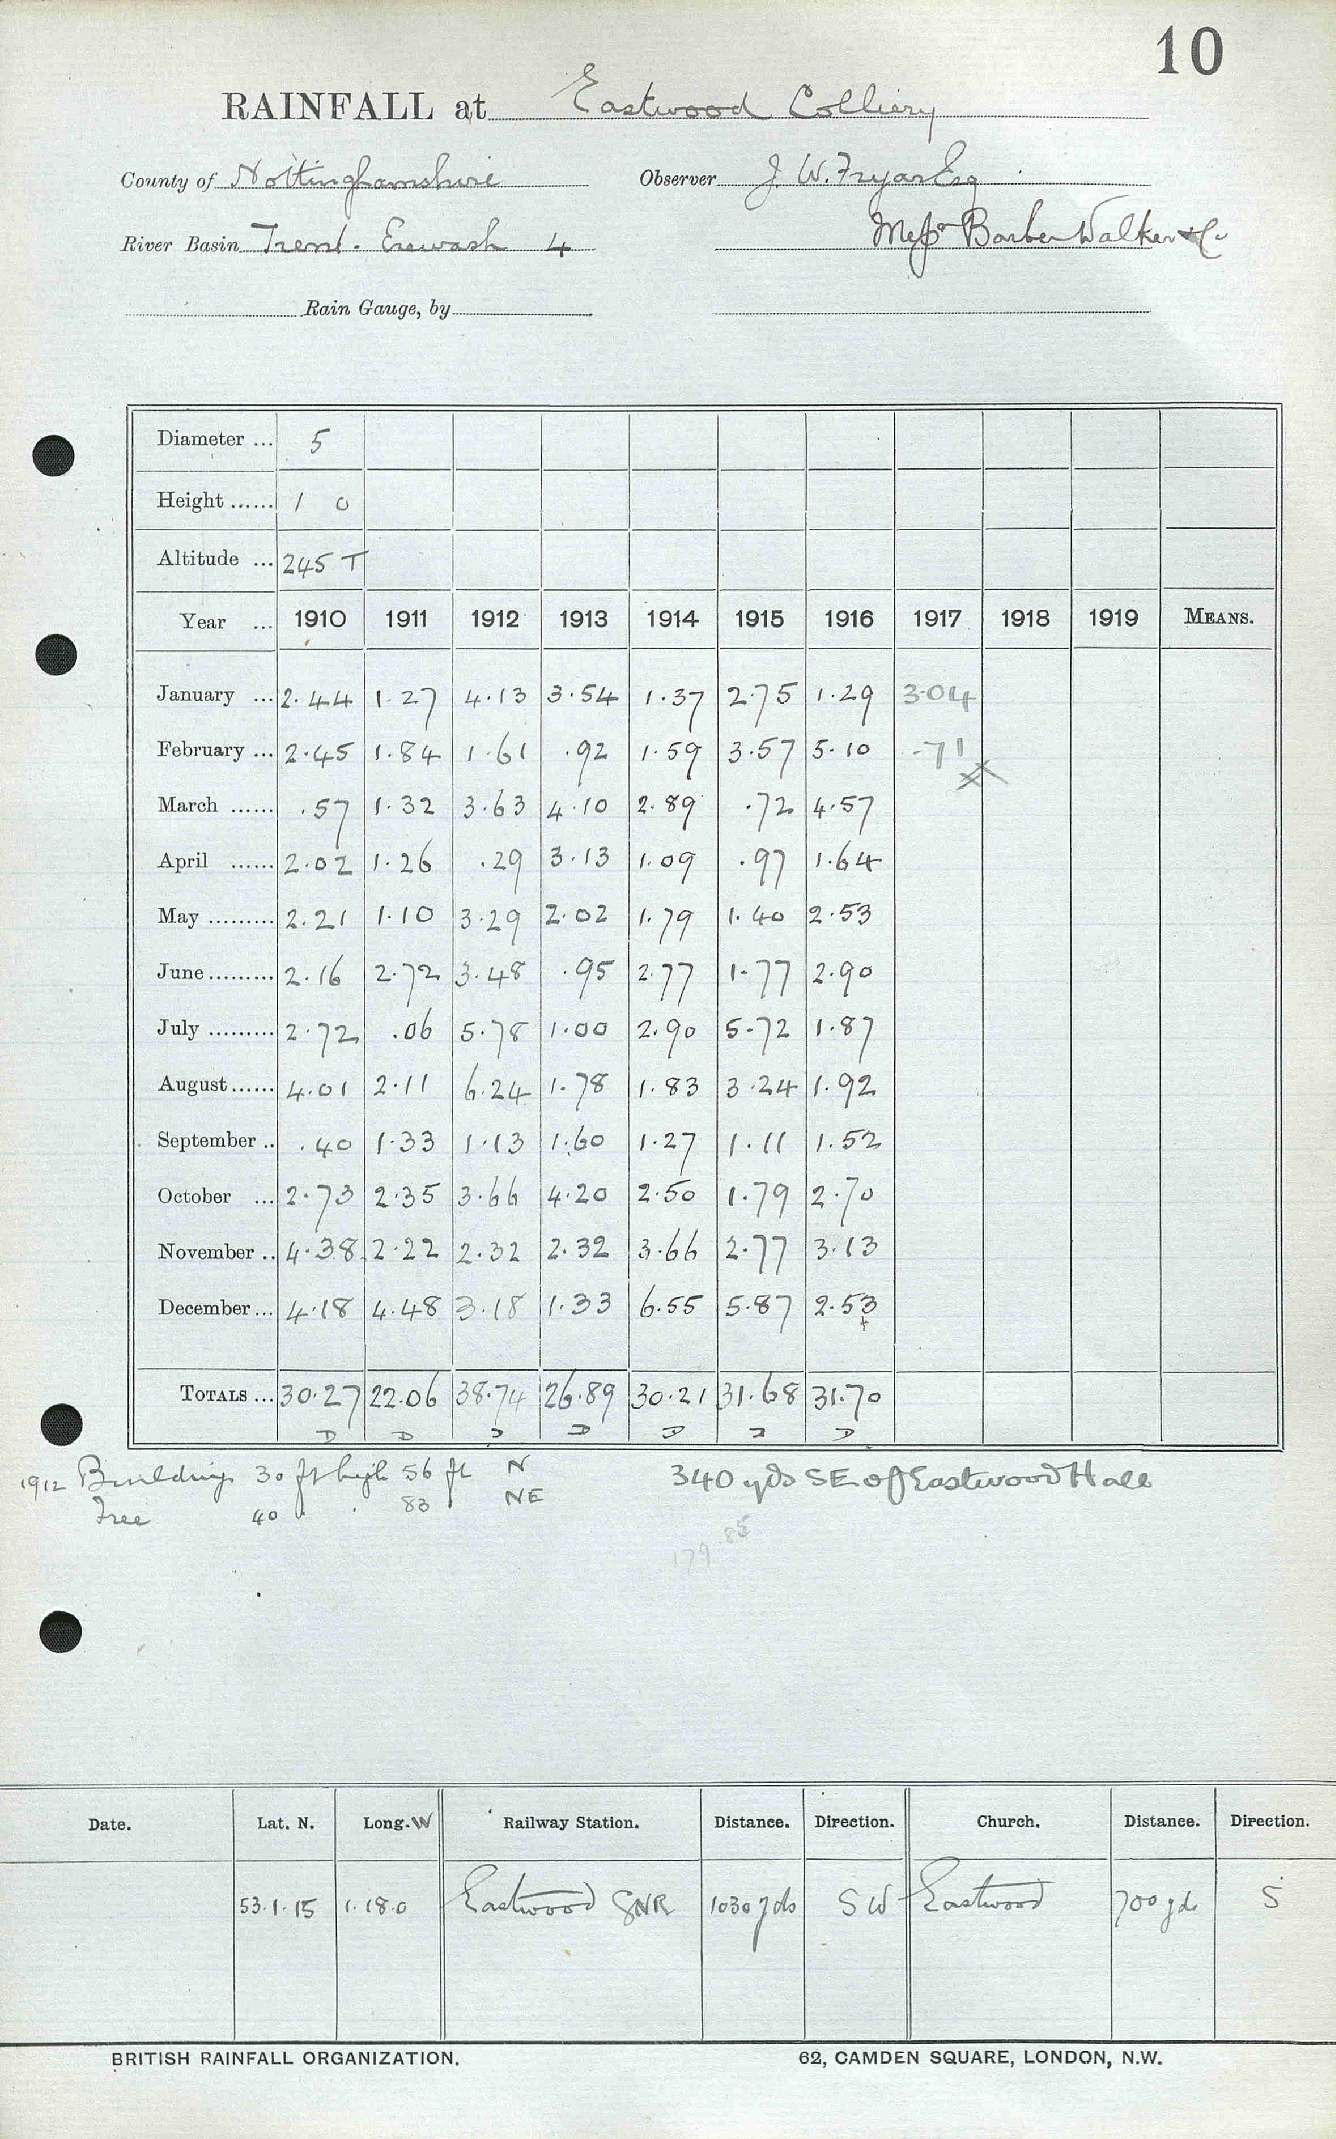 10
RAINFALL at Eastwood Colliery
County of Nottinghamshire Observer J. W. Fryar Esq
River Basin Trent. Erewash 4 Messrs Barber Walker & Co
Rain Gauge, by
Diameter ... 5
Height ...... 1 0
Altitude ... 245 T
Year ... 1910 1911 1912 1913 1914 1915 1916 1917 1918 1919 MEANS.
January ... 2.44 1.27 4.13 3.54 1.37 2.75 1.29 3.04
February ... 2.45 1.84 1.61 .92 1.59 3.57 5.10 .71
March ...... .57 1.32 3.63 4.10 2.89 .72 4.57
April ...... 2.02 1.26 .29 3.13 1.09 .97 1.64
May ......... 2.21 1.10 3.29 2.02 1.79 1.40 2.53
June ......... 2.16 2.72 3.48 .95 2.77 1.77 2.90
July ......... 2.72 .06 5.78 1.00 2.90 5.72 1.87
August ...... 4.01 2.11 6.24 1.78 1.83 3.24 1.92
September .. .40 1.33 1.13 1.60 1.27 1.11 1.52
October ... 2.73 2.35 3.66 4.20 2.50 1.79 2.70
November .. 4.38 2.22 2.32 2.32 3.66 2.77 3.13
December ... 4.18 4.48 3.18 1.33 6.55 5.87 2.53
+
TOTALS ... 30.27 22.06 38.74 26.89 30.21 31.68 31.70
D D D D D D D
1912 Buildings 30 ft high 56 ft N 340 yds SE of Eastwood Hall
Tree 40 " " 83 " NE
179.85
Date. Lat. N. Long. W Railway Station. Distance. Direction. Church. Distance. Direction.
53.1.15 1.18.0 Eastwood GNR 1030 yds SW Eastwood 700 yds S
BRITISH RAINFALL ORGANIZATION. 62, CAMDEN SQUARE, LONDON, N.W.